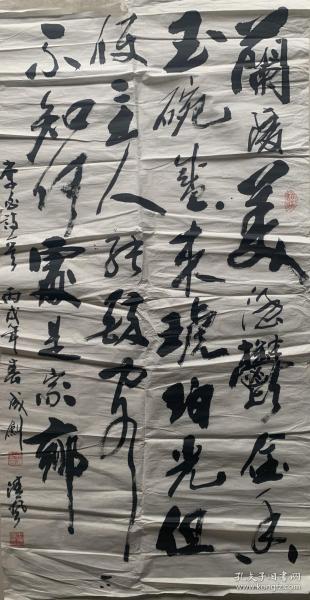 蘭陵美酒鬱金香
玉碗盛來琥珀光但
使主人能醉客
不知何處是家鄉
李白詩 丙戌年春
孔夫子旧书网